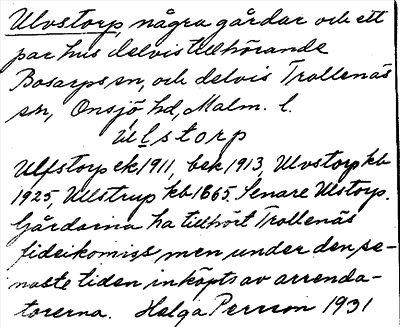 Ulvstorp, några gårdar och ett
par hus delvis tillhörande
Bosarps sn, och delvis Trollenäs
sn, Onsjö hd, Malm. l.
Ulstorp
Ulfstorp ek 1911, bek 1913, Ulvstorp kb
1925, Ullstrup kb 1865. Senare Ulstorp.
Gårdarna ha tillhört Trollenäs
fideikomiss men under den se-
naste tiden inköpts av arrenda-
torerna. Helga Persson 1931